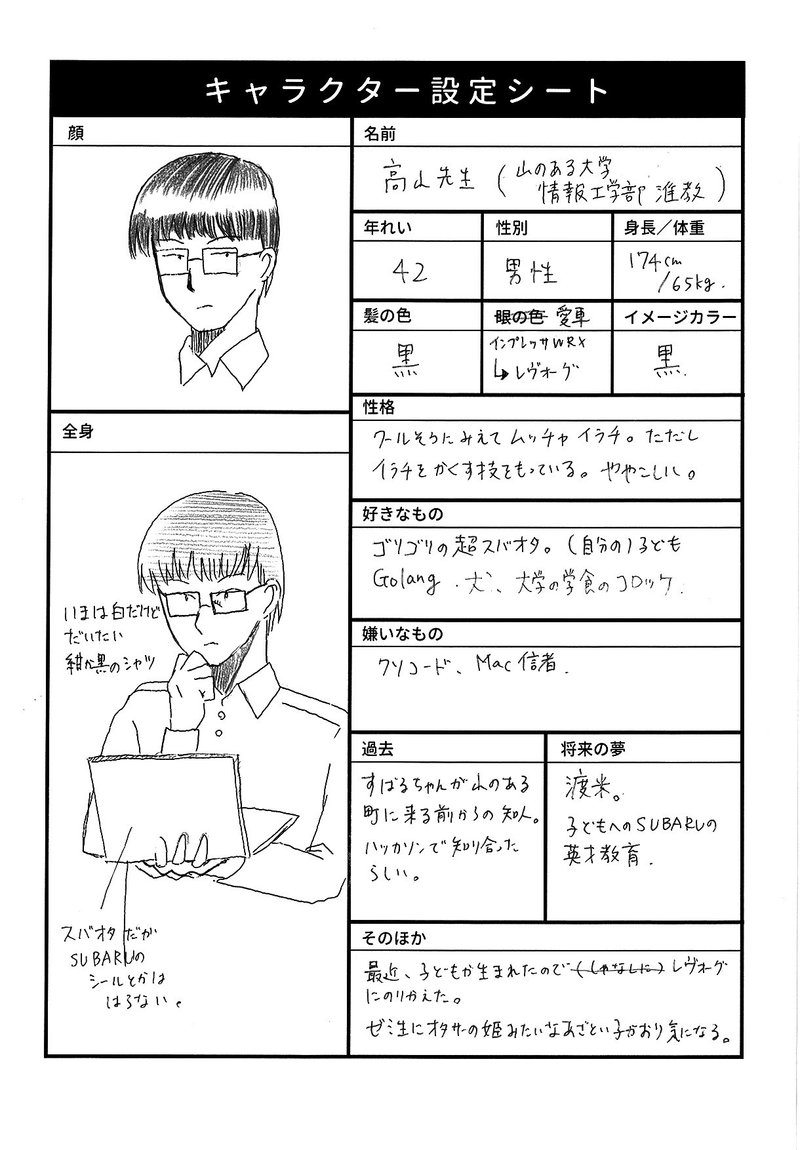 キャラクター設定シート
顔
名前
高山先生(山のある大学
情報工学部 准教)
年れい
42
性別
男性
身長/体重
174cm
/65kg.
髪の色
黒
眼の色 愛車
インプレッサWRX
↳レヴォーグ
イメージカラー
黒.
性格
クールそうにみえてムッチャイラチ。ただし
イラチをかくす技をもっている。ややこしい。
好きなもの
ゴリゴリの超スバオタ。(自分の)子ども
Golang.犬、大学の学食のコロッケ.
嫌いなもの
クソコード、Mac信者.
過去
すばるちゃんが山のある
町に来る前からの知人。
ハッカソンで知り合った
らしい。
将来の夢
渡米。
子どもへのSUBARUの
英才教育.
そのほか
最近、子どもが生まれたので(しゃなしに)レヴォーグ
にのりかえた。
ゼミ生にオタサーの姫みたいなあざとい子がおり気になる。
全身
いまは白だけど
だいたい
紺か黒のシャツ
スバオタだが
SUBARUの
シールとかは
はらない。